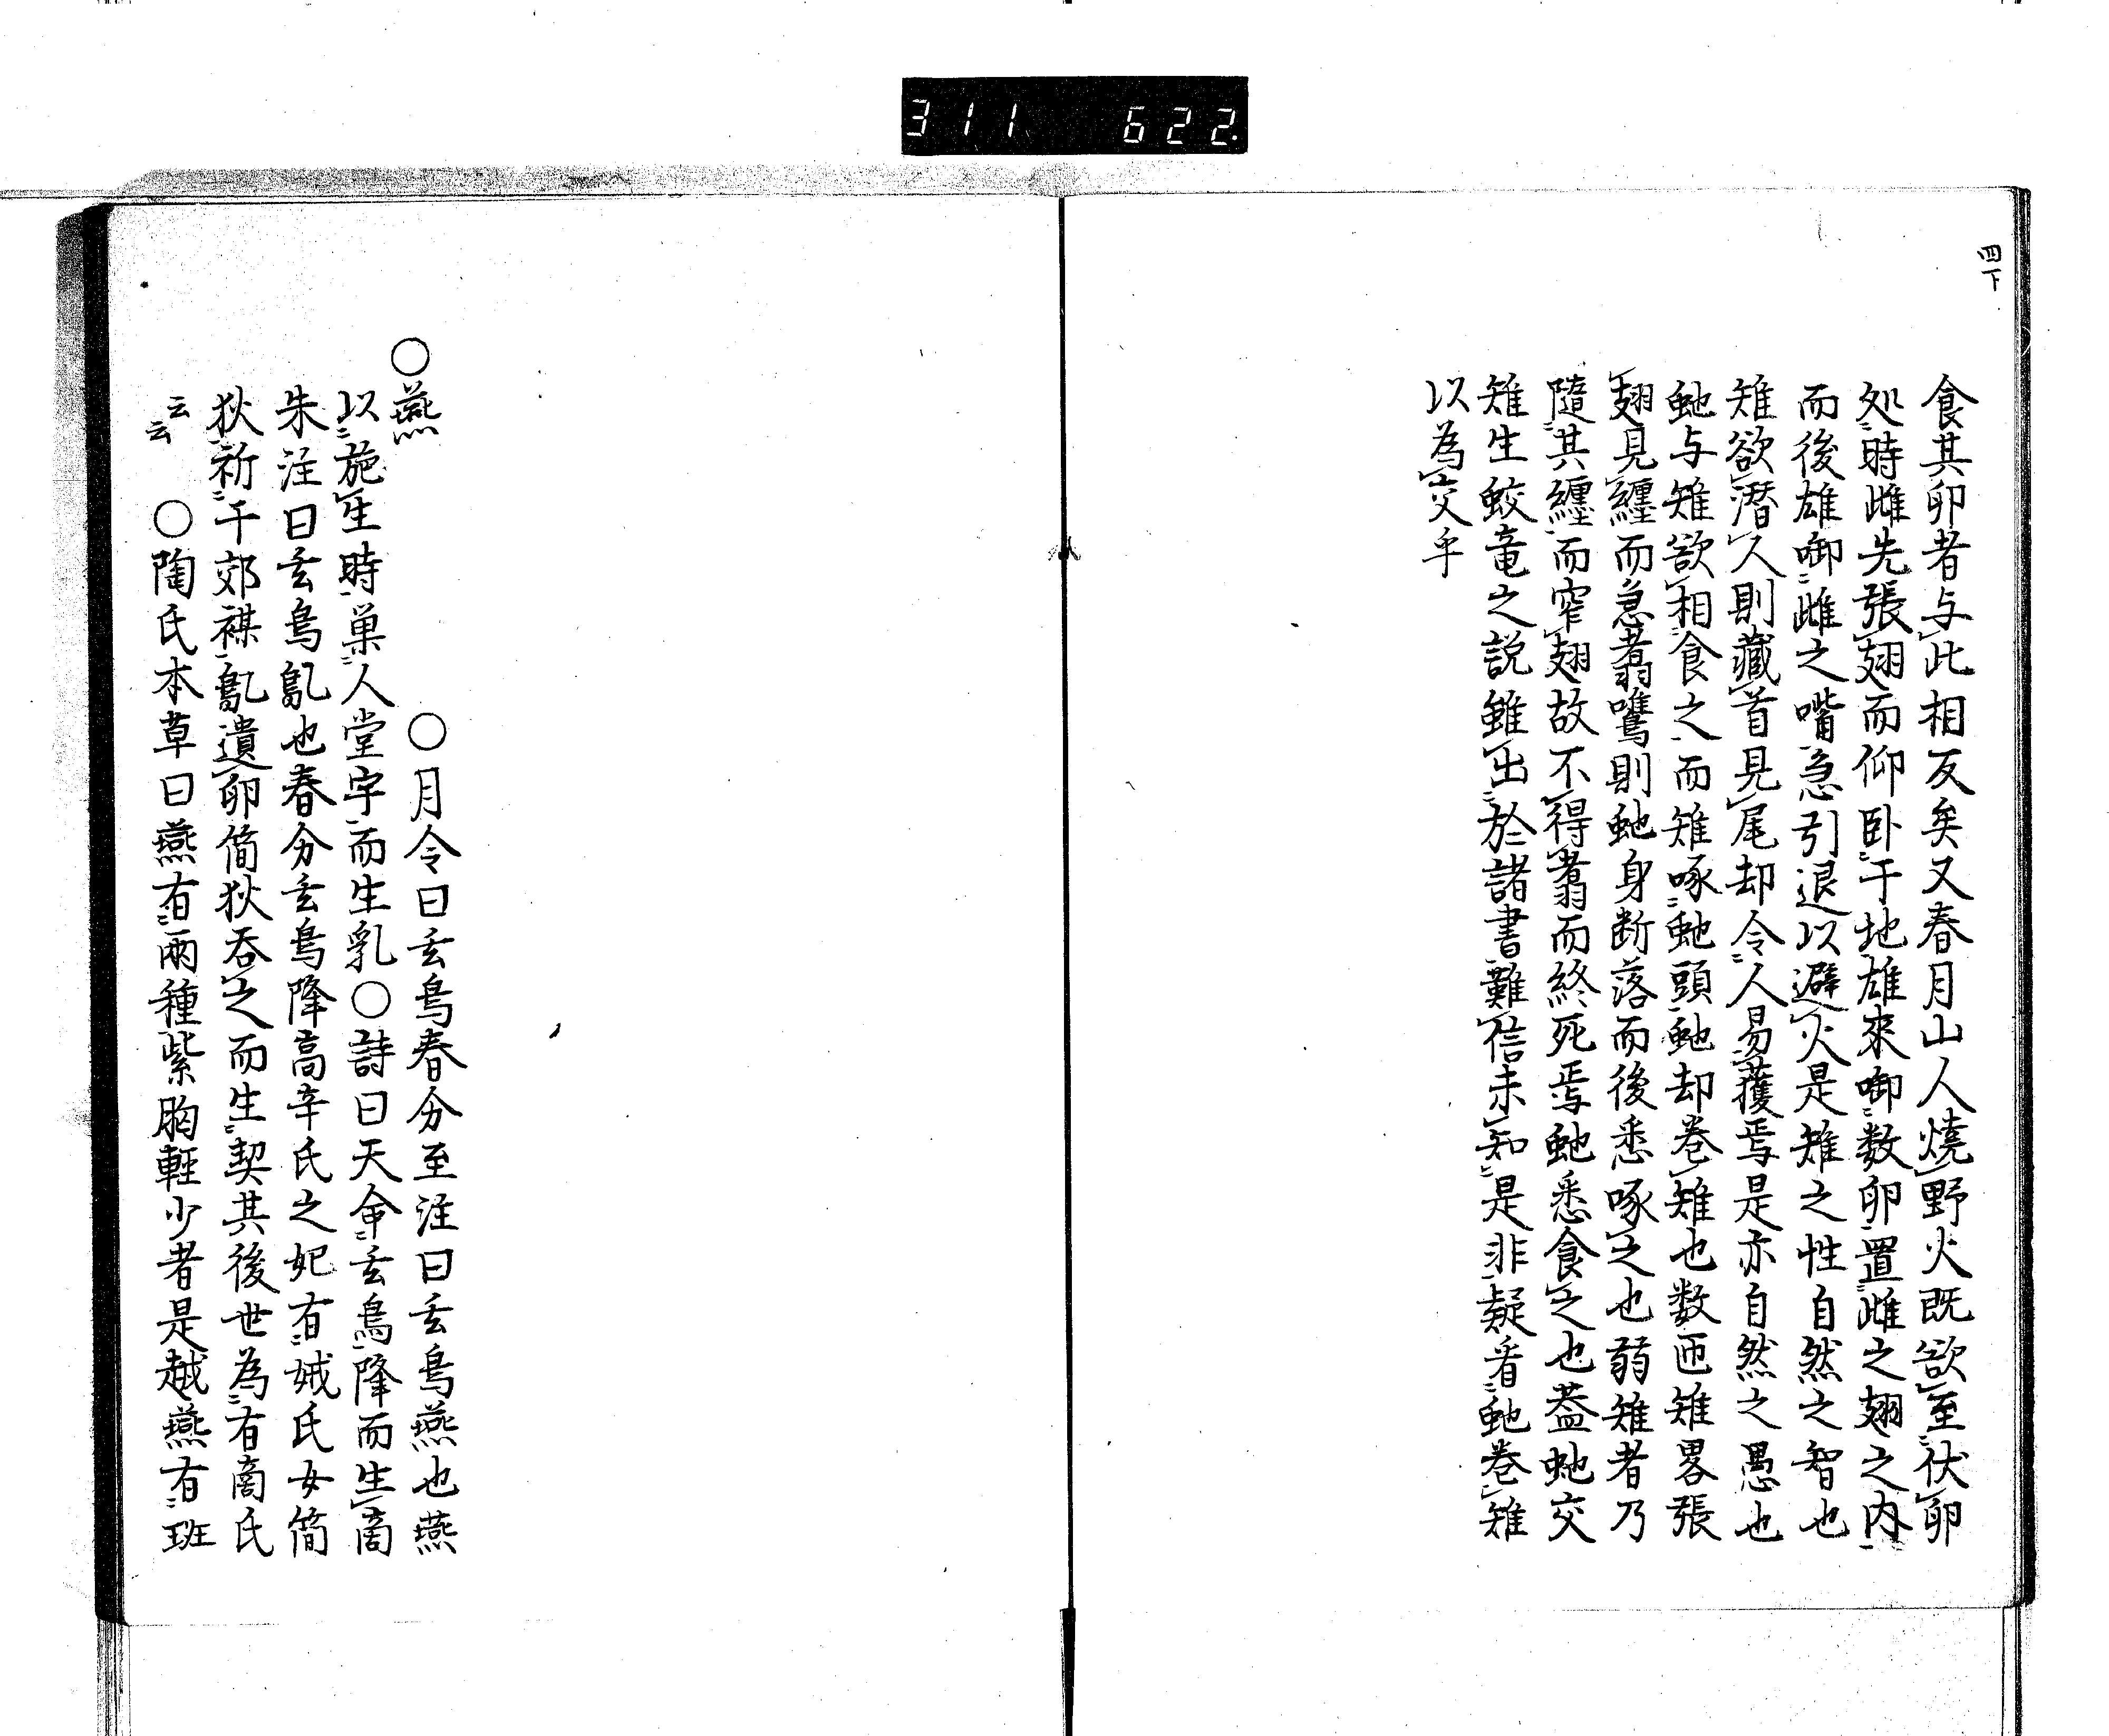 311 622.
四下
食其卵者与此相反矣又春月山人燒野火既欲至伏卵
処時雌先張翅而仰卧于地雄來啣数卵置雌之翅之内
而後雄啣雌之嘴急引退以避火是雉之性自然之智也
雉欲潜人則藏首見尾却令人易獲焉是亦自然之愚也
虵与雉欲相食之而雉啄虵頭虵却卷雉也数匝雉畧張
翅見纏而急翥嘴則虵身断落而後悉啄之也弱雉者乃
隨其纏而窄翅故不得翥而終死焉虵悉食之也蓋虵交
雉生蛟竜之説雖出於諸書難信未知是非疑看虵卷雉
以為交乎
○燕　○月令曰玄鳥春分至注曰玄鳥燕也燕
以施生時巣人堂宇而生乳○詩曰天命玄鳥降而生商
朱注曰玄鳥鳦也春分玄鳥降高辛氏之妃有娀氏女簡
狄祈于郊禖鳦遺卵簡狄吞之而生契其後世為有商氏
云云　○陶氏本草曰燕有両種紫胸軽少者是越燕有班